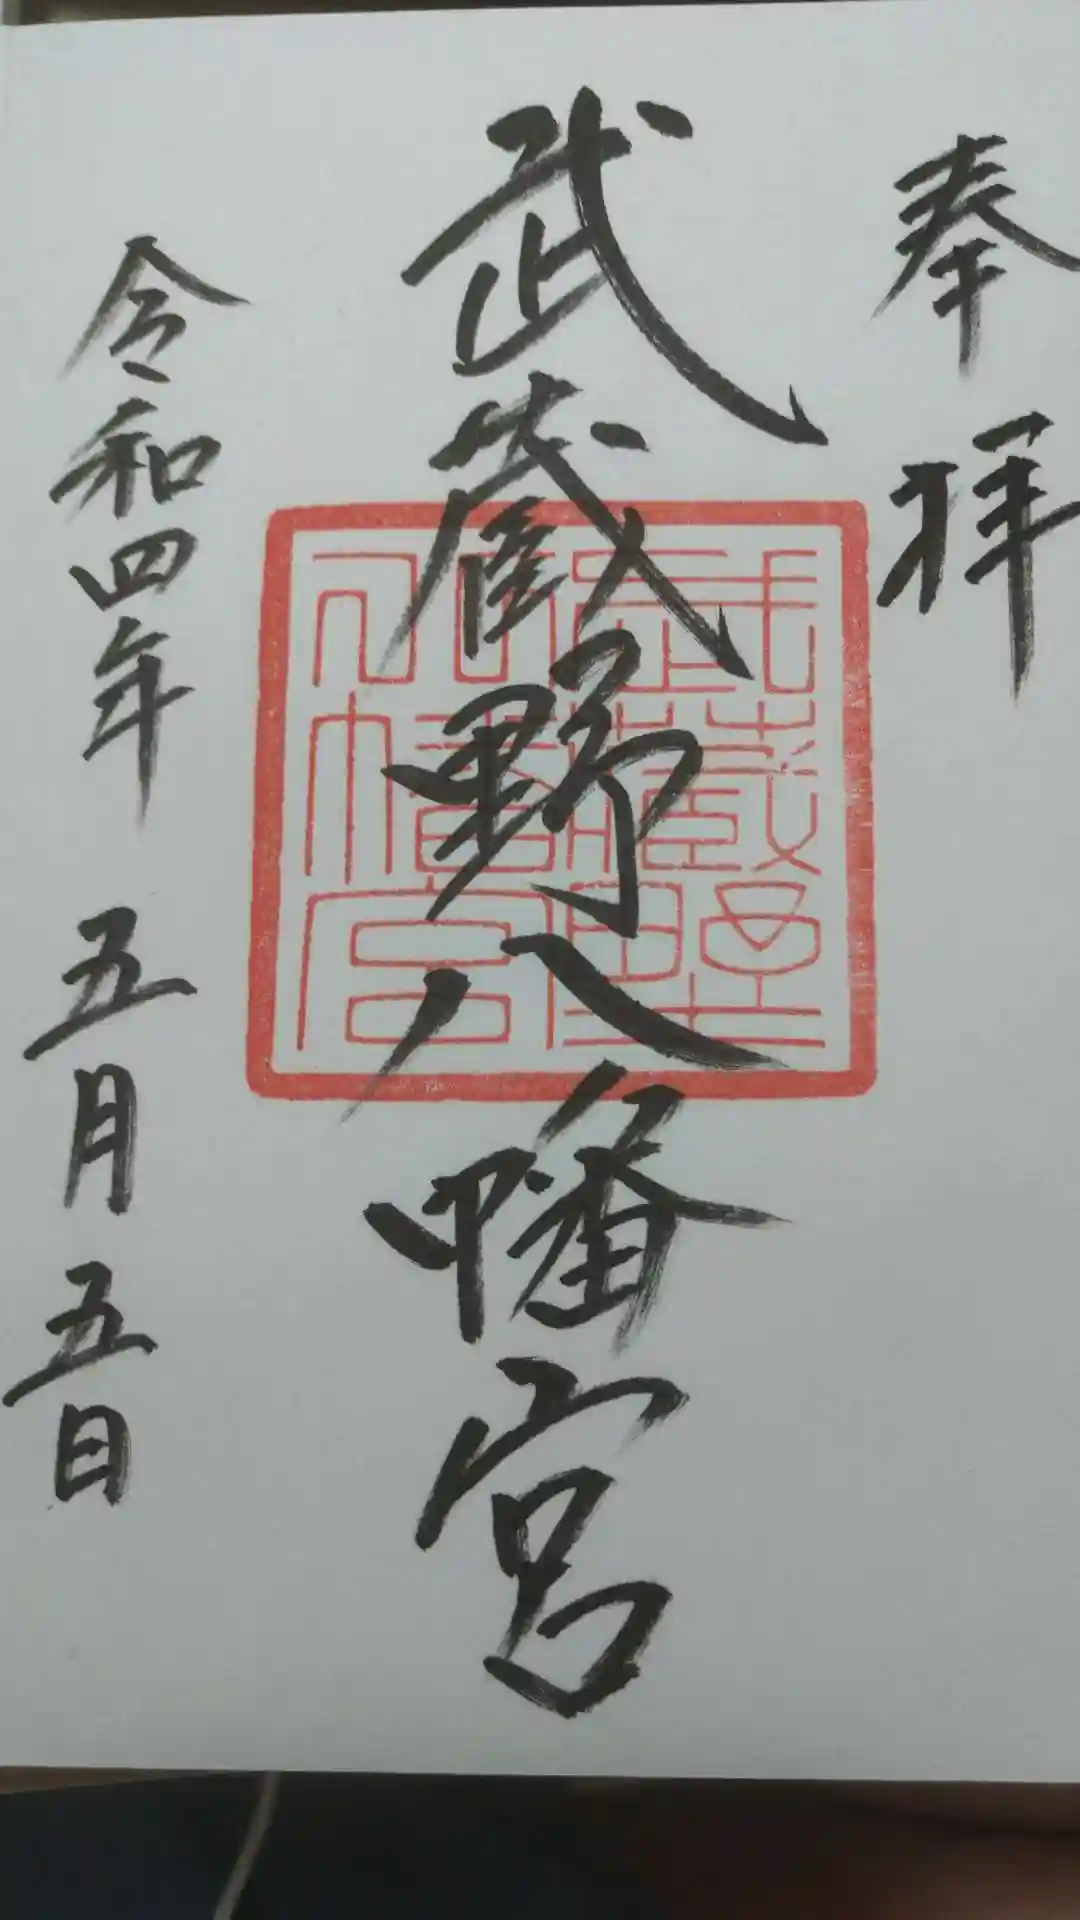 奉拝
武蔵野八幡宮
武蔵野八幡宮
令和四年 五月 五日